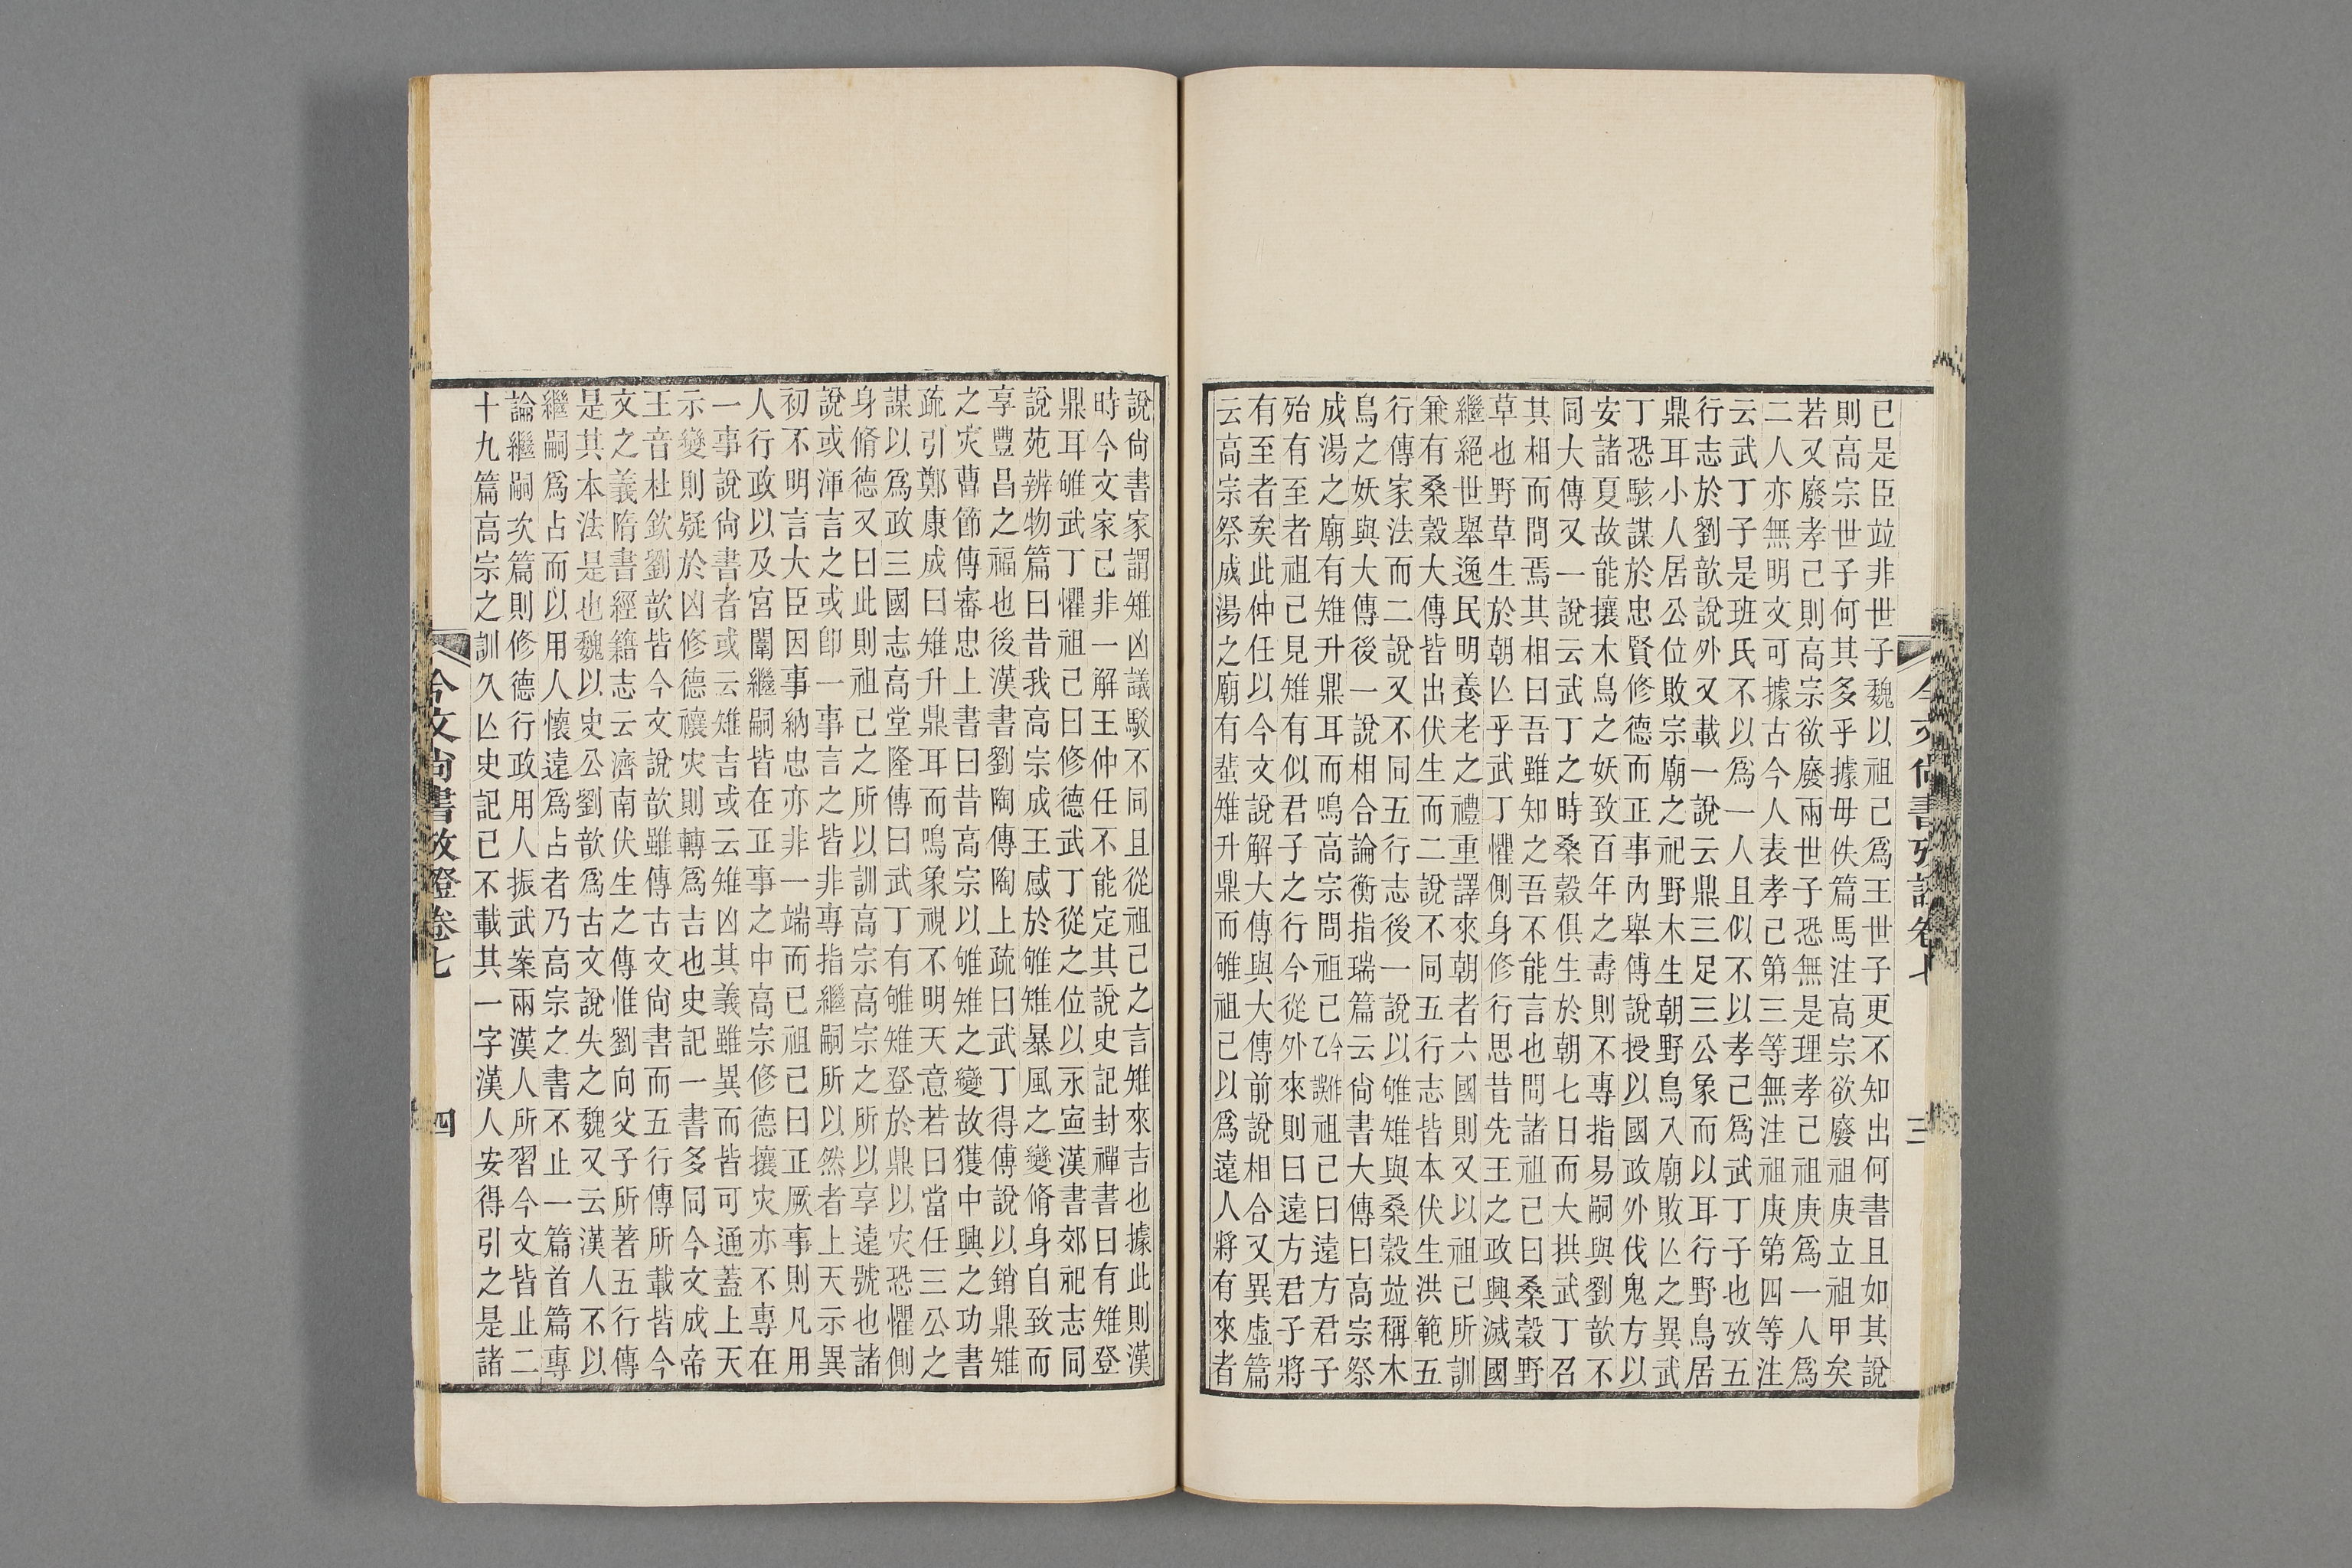 己是臣竝非世子魏以祖己爲王世子更不知出何書且如其說
則高宗世子何其多乎據毋佚篇馬注高宗欲廢祖庚立祖甲矣
若又廢孝己則高宗欲廢兩世子恐無是理孝己祖庚爲一人爲
二人亦無明文可據古今人表孝己第三等無注祖庚第四等注
云武丁子是班氏不以爲一人且似不以孝己爲武丁子也攷五
行志於劉歆說外又載一說云鼎三足三公象而以耳行野鳥居
鼎耳小人居公位敗宗廟之祀野木生朝野鳥入廟敗亾之異武
丁恐駭謀於忠賢修德而正事內舉傅說授以國政外伐鬼方以
安諸夏故能攘木鳥之妖致百年之壽則不專指易嗣與劉歆不
同大傳又一說云武丁之時桑穀俱生於朝七日而大拱武丁召
其相而問焉其相曰吾雖知之吾不能言也問諸祖己曰桑穀野
草也野草生於朝亾乎武丁懼側身修行思昔先王之政興滅國
繼絕世舉逸民明養老之禮重譯來朝者六國則又以祖己所訓
兼有桑穀大傳皆出伏生而二說不同五行志皆本伏生洪範五
行傳家法而二說又不同五行志後一說以雊雉與桑穀竝稱木
鳥之妖與大傳後一說相合論衡指瑞篇云尙書大傳曰高宗祭
成湯之廟有雉升鼎耳而鳴高宗問祖己祖己曰遠方君子
殆有至者祖己見雉有似君子之行今從外來則曰遠方君子將
有至者矣此仲任以今文說解大傳與大傳前說相合又異虛篇
云高宗祭成湯之廟有蜚雉升鼎而雊祖己以爲遠人將有來者
說尙書家謂雉凶議駁不同且從祖己之言雉來吉也據此則漢
時今文家已非一解王仲任不能定其說史記封禪書曰有雉登
鼎耳雊武丁懼祖己曰修德武丁從之位以永寍漢書郊祀志同
說苑辨物篇曰昔我高宗成王感於雊雉暴風之變脩身自致而
享豐昌之福也後漢書劉陶傳陶上疏曰武丁得傅說以銷鼎雉
之灾曹節傳審忠上書曰昔高宗以雊雉之變故獲中興之功書
疏引鄭康成曰雉升鼎耳而鳴象視不明天意若曰當任三公之
謀以爲政三國志高堂隆傳曰武丁有雊雉登於鼎以灾恐懼側
身脩德又曰此則祖己之所以訓高宗高宗之所以享遠號也諸
說或渾言之或卽一事言之皆非專指繼嗣所以然者上天示異
初不明言大臣因事納忠亦非一端而已祖己曰正厥事則凡用
人行政以及宮闈繼嗣皆在正事之中高宗修德攘灾亦不專在
一事說尙書者或云雉吉或云雉凶其義雖異而皆可通蓋上天
示變則疑於凶修德禳灾則轉爲吉也史記一書多同今文成帝
王音杜欽劉歆皆今文說歆雖傳古文尙書而五行傳所載皆今
文之義隋書經籍志云濟南伏生之傳惟劉向父子所著五行傳
是其本法是也魏以史公劉歆爲古文說失之魏又云漢人不以
繼嗣爲占而以用人懷遠爲占者乃高宗之書不止一篇首篇專
論繼嗣次篇則修德行政用人振武案兩漢人所習今文皆止二
十九篇高宗之訓久亾史記已不載其一字漢人安得引之是諸
今文尙書攷證卷七
三
今文尙書攷證卷七
四